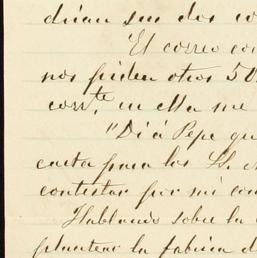 drian sus dos co
"El correo con
nos piden otros 50
corr.te en ella me
"Di á Pepe qu
carta para los SS.
contestar por mi con
Hablamos sobre la
plantear la fabrica d